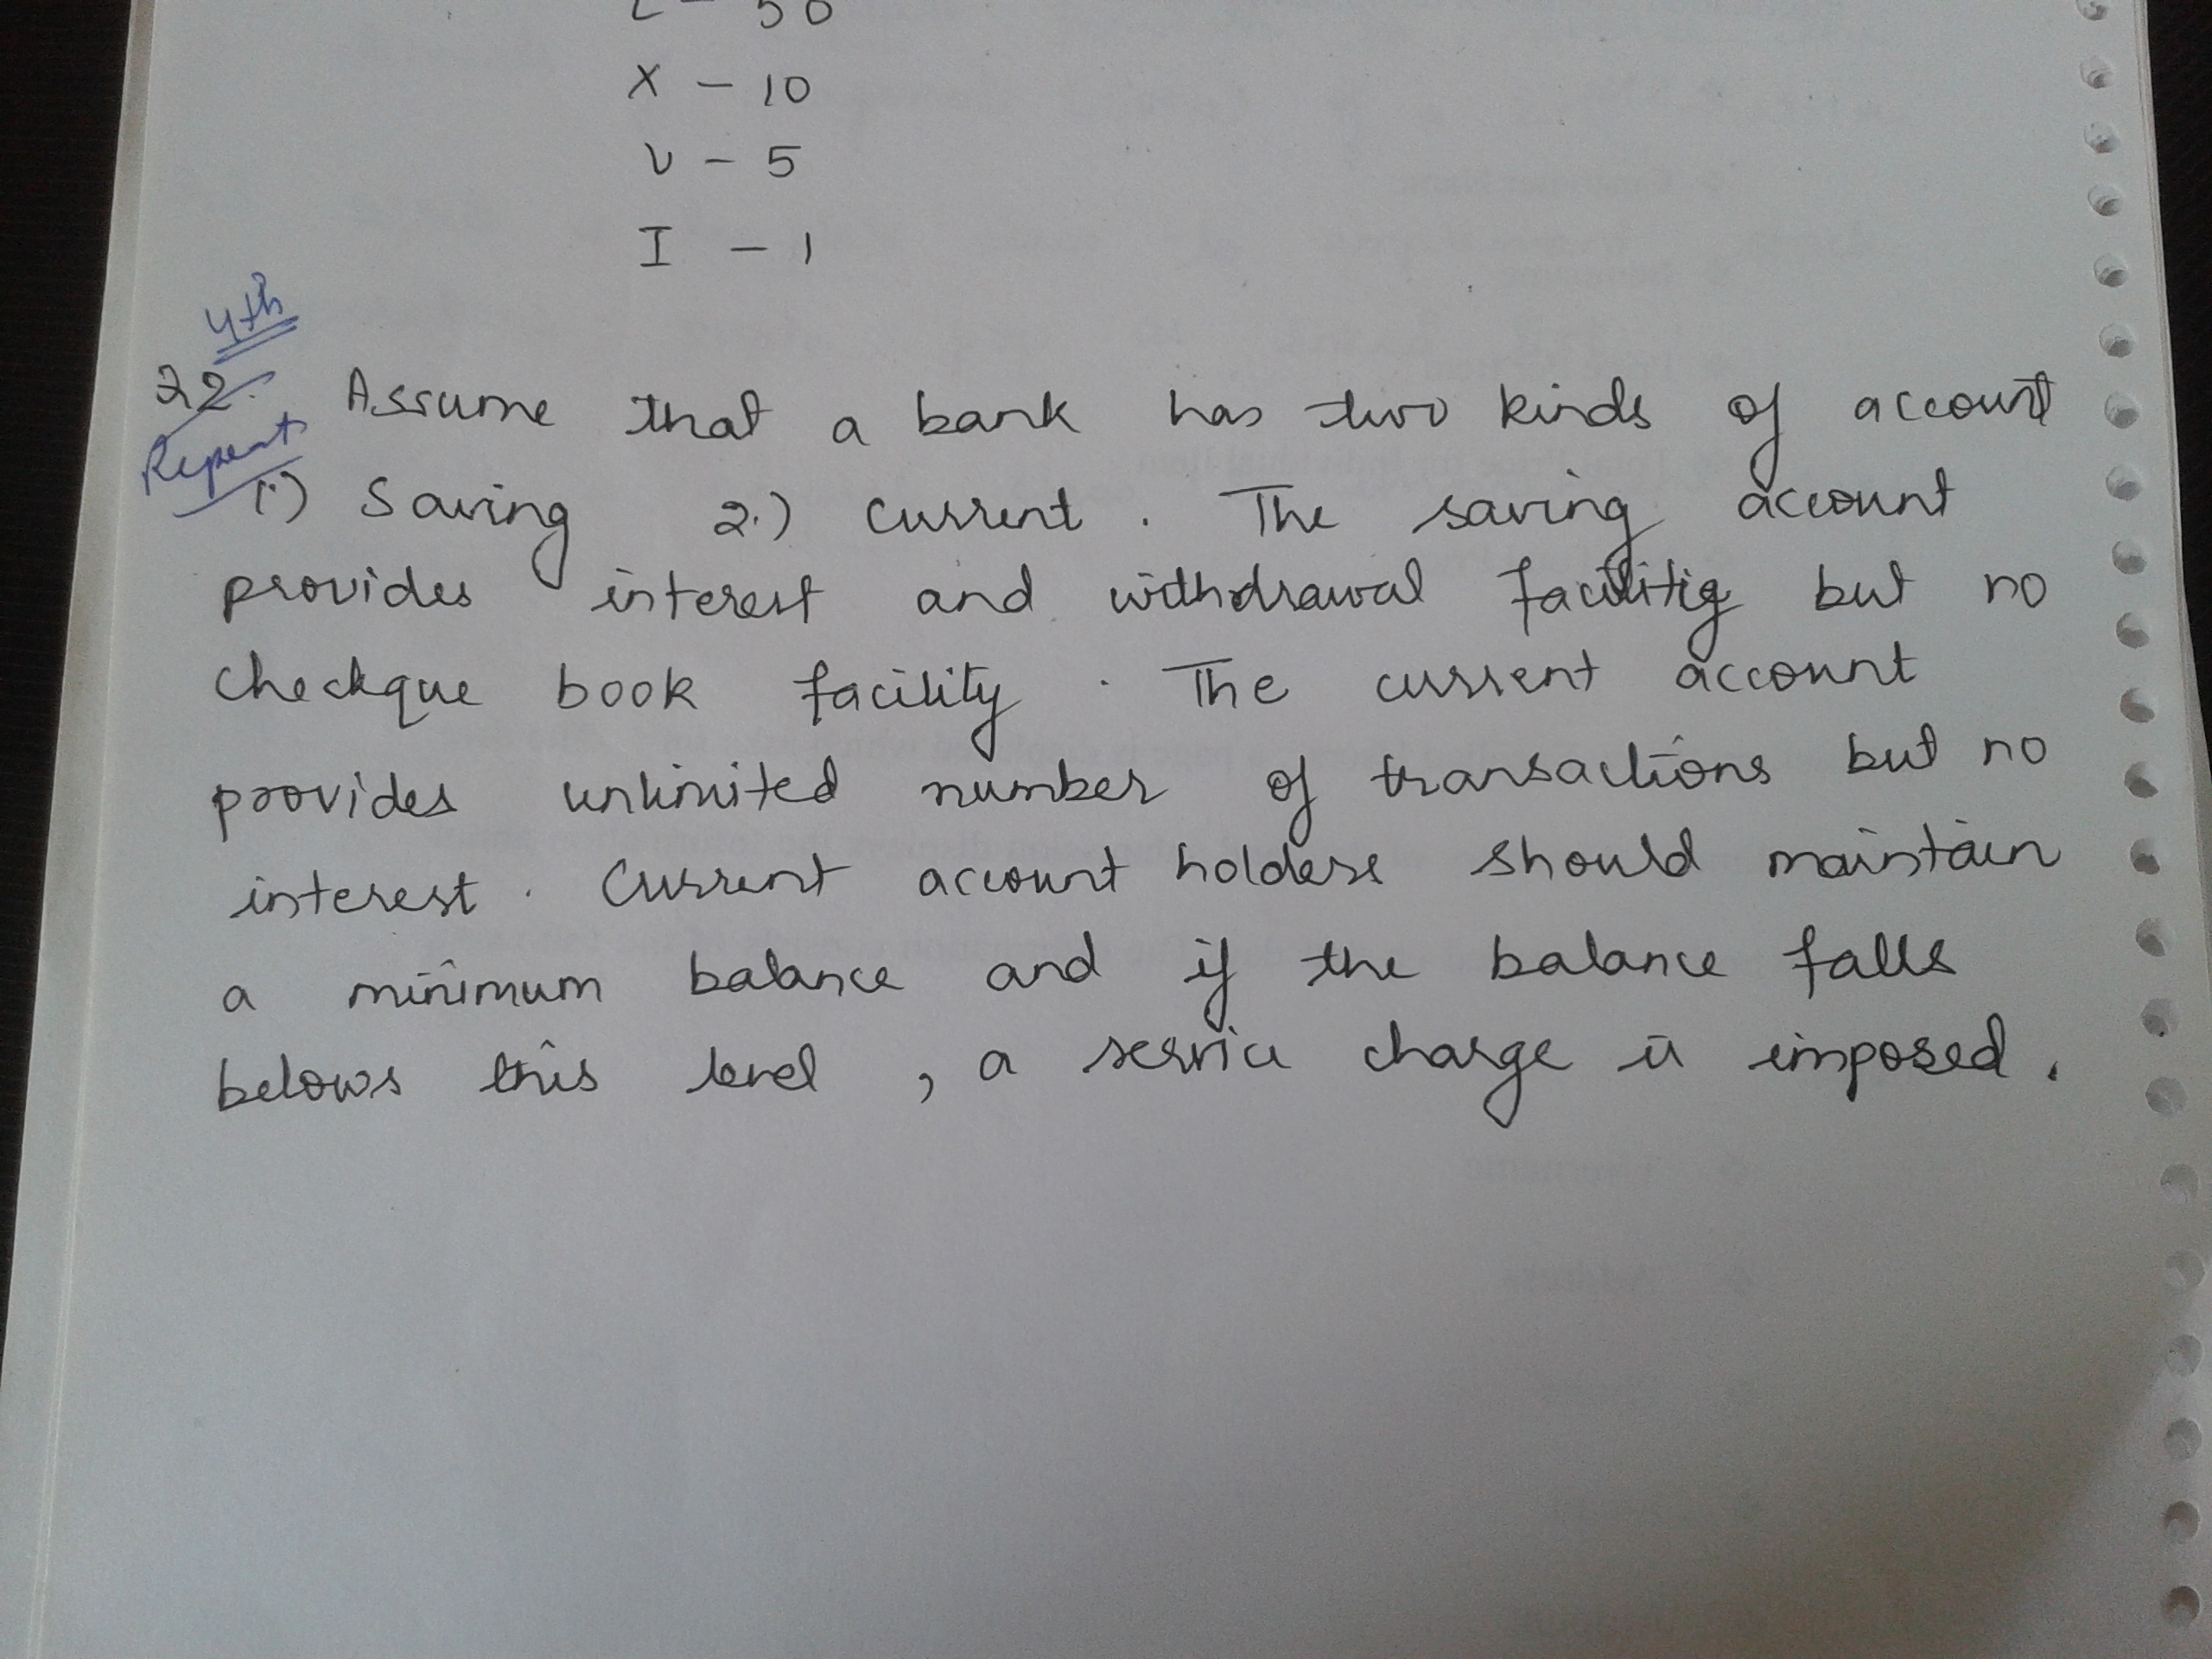 L - 50
X - 10
V - 5
I - 1
4th
22. Assume that a bank has two kinds of account
Repeat
1.) Saving 2.) Current . The saving account
provides interest and withdrawal but no
checkque book facility . The current account
provides unlimited number of transactions but no
interest . Current account holders should maintain
a minimum balance and if the balance falls
belows this level , a service charge is imposed .